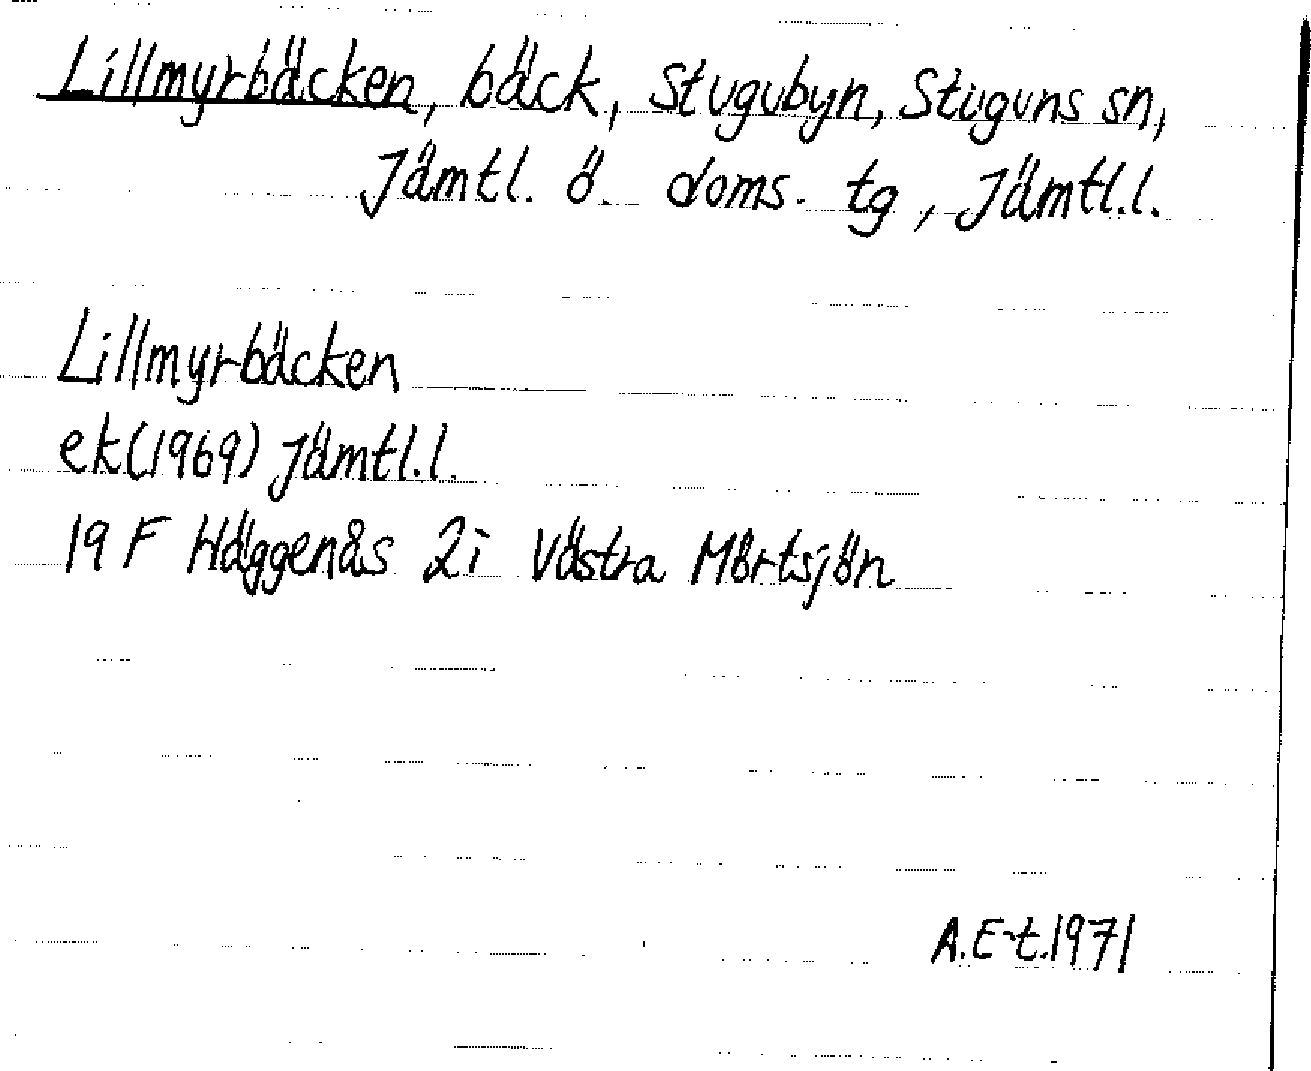 Lillmyrbäcken, bäck, Stugubyn, Stuguns sn,
Jämtl. ö. doms. tg, Jämtl.l.
Lillmyrbäcken
ek(1969) Jämtl.l.
19 F Häggenås 2i Västra Mörtsjön
A.E-t.1971